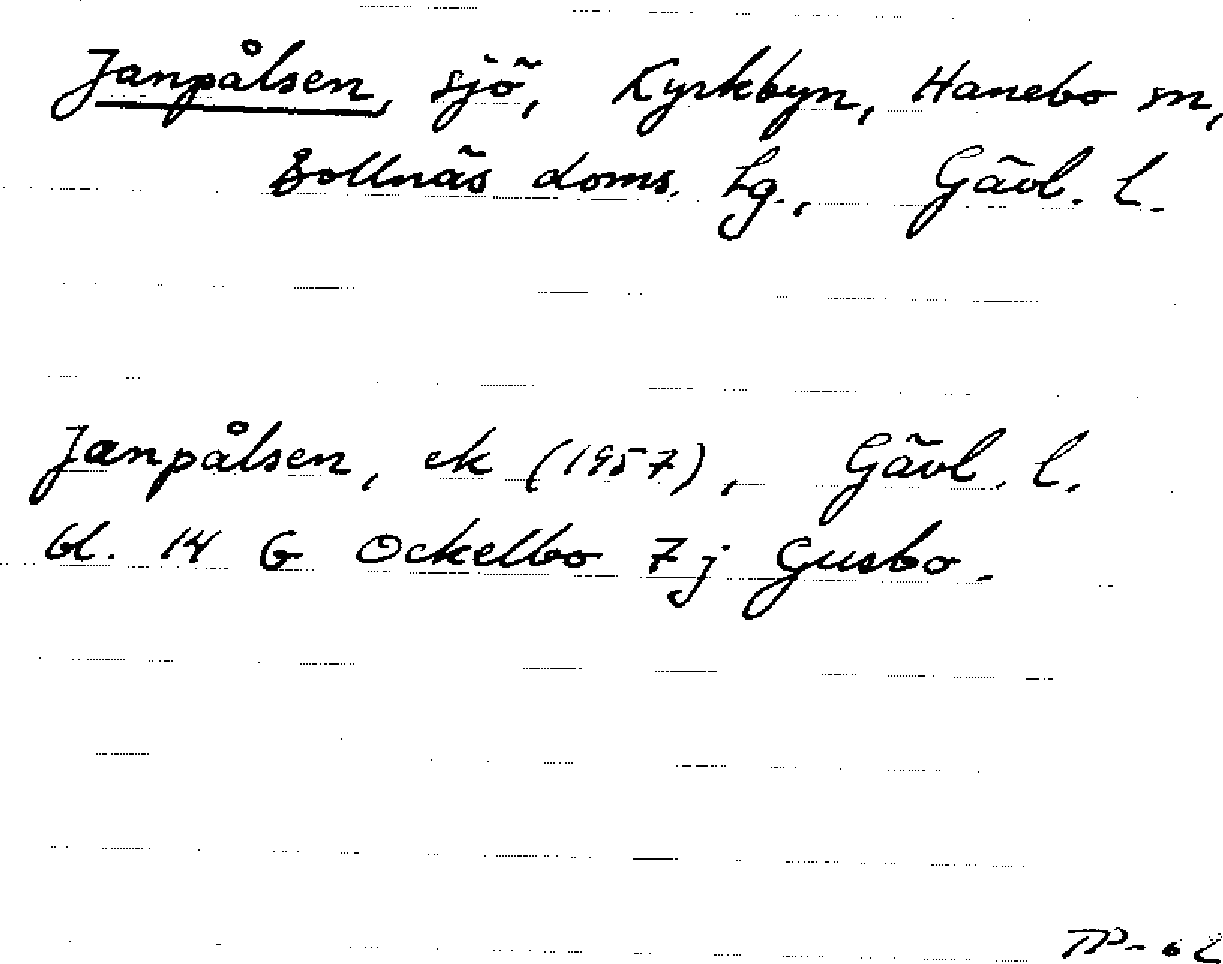 Janpålsen, sjö, Kyrkbyn, Hanebo sn,
Bollnäs doms. hg., Gävl. l.
Janpålsen, ek (1957), Gävl. l.
bl. 14 G Ockelbo 7j Gusbo.